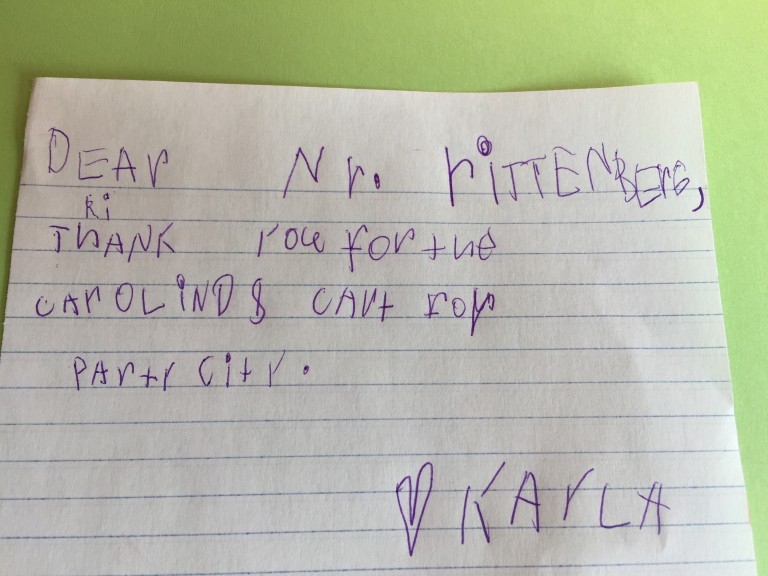 DEAr Nr. riTTENBErG,
ki
ThANK you for the
cArOLiND8 cArt for
PArty City.
♡ KArLA